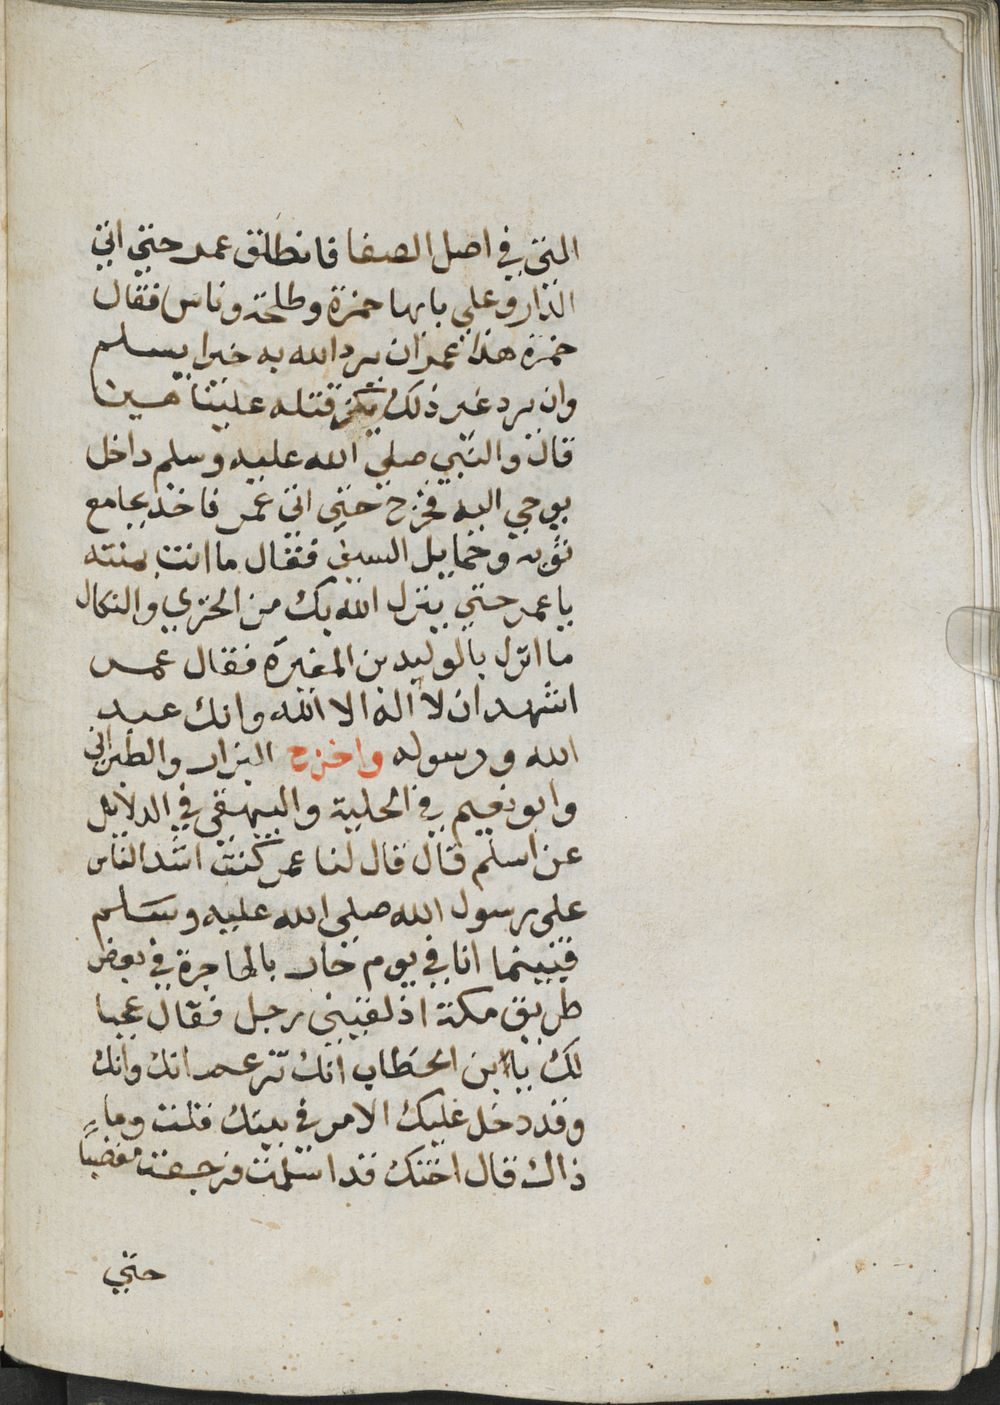 التي في اصل الصفا فانطلق عمر حتى اتى
الدار وعلى بابها حمزة وطلحة وناس فقال
حمزة هذا عمر ان يرد الله به خيرا يسلم
وان يرد غير ذلك يكن قتله علينا هينا
قال والنبي صلى الله عليه وسلم داخل
يوحي اليه فخرج حتى اتى عمر فاخذ بمجامع
ثوبه وحمايل السيف فقال ما انت بمنته
يا عمر حتى ينزل الله بك من الخزي والنكال
ما انزل بالوليد بن المغيرة فقال عمر
اشهد ان لا اله الا الله وانك عبد
الله ورسوله واخرج البزار والطبراني
وابو نعيم في الحلية والبيهقي في الدلائل
عن اسلم قال قال لنا عمر كنت اشد الناس
على رسول الله صلى الله عليه وسلم
فبينما انا في يوم حار بالهاجرة في بعض
طريق مكة اذ لقيني رجل فقال عجبا
لك يا ابن الخطاب انك تزعم انك وانك
وقد دخل عليك الامر في بيتك قلت وما
ذاك قال اختك قد اسلمت فرجعت مغضبا
حتى